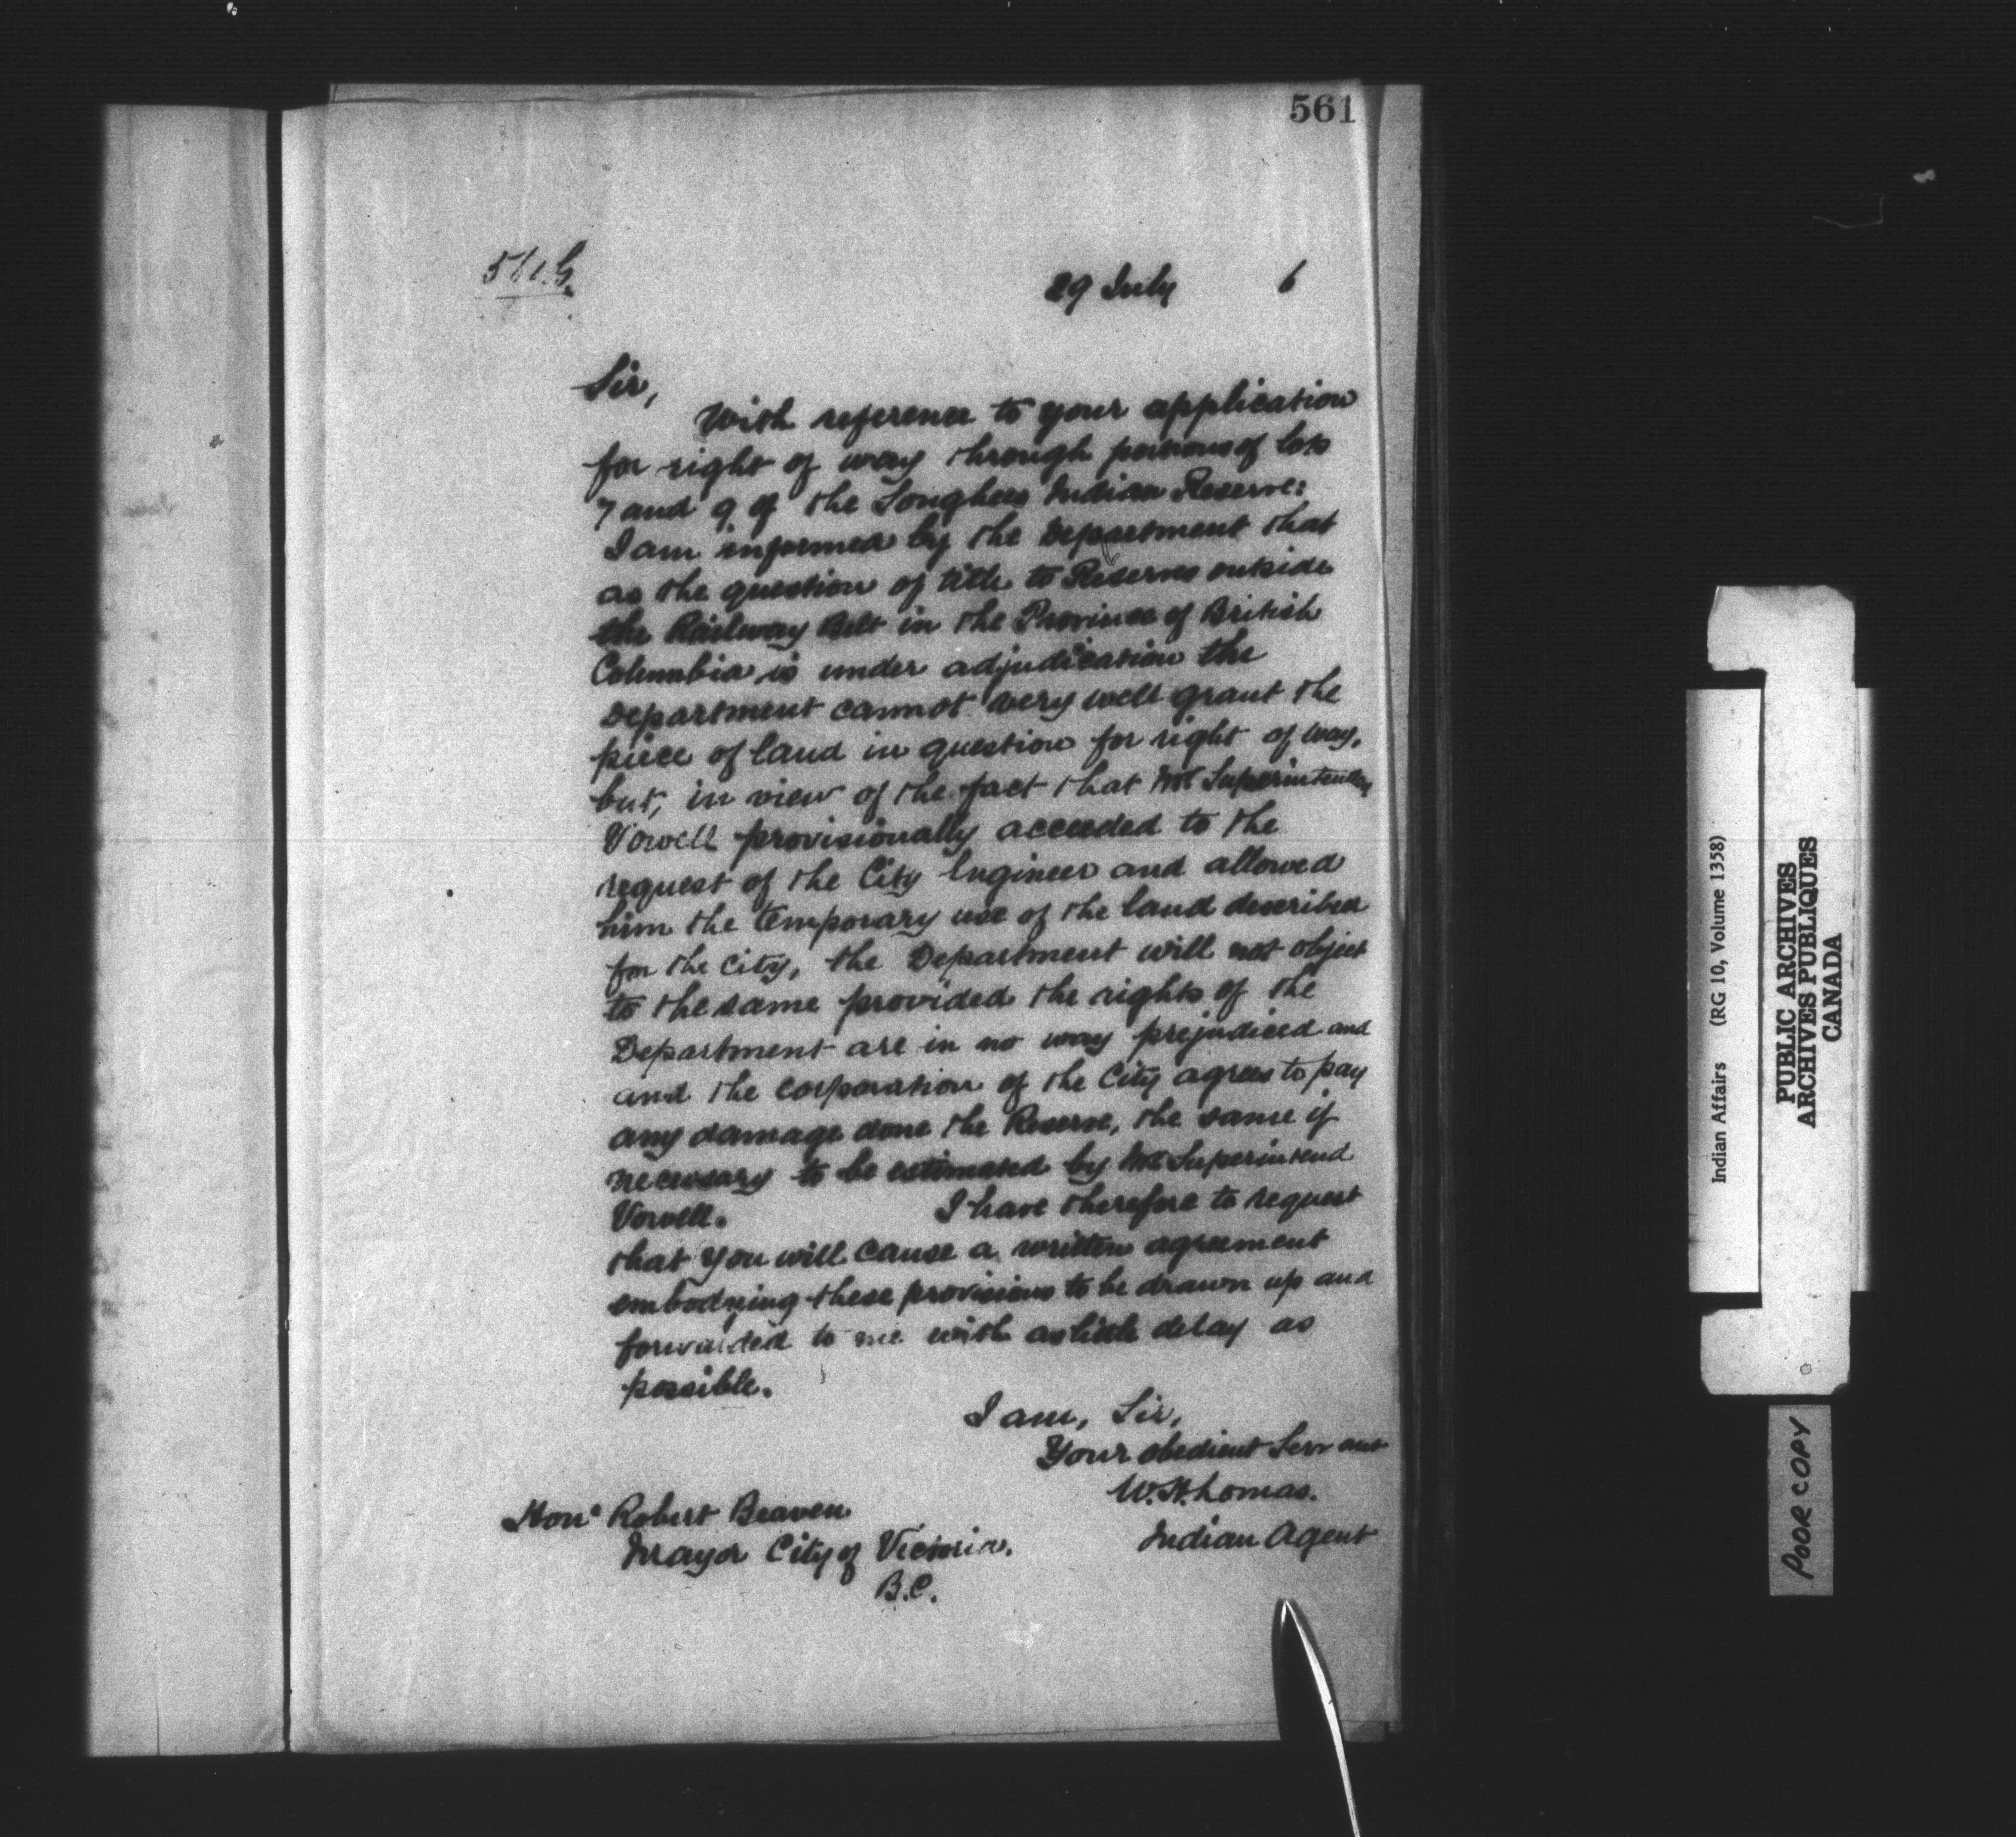 561
29 July 6
Sir,
With reference to your application
for right of way through portions of lots
7 and 9 of the Songhees Indian Reserve:
I am informed by the Department that
as the question of title to Reserves outside
the Railway Belt in the Province of British
Columbia is under adjudication the
Department cannot very well grant the
piece of land in question for right of way,
but, in view of the fact that Mr Superintendent
Vowell provisionally acceeded to the
request of the City Engineer and allowed
him the temporary use of the land described
for the City, the Department will not object
to the same provided the rights of the
Department are in no way prejudiced and
and the corporation of the City agrees to pay
any damage done the Reserve, the same if
necessary to be estimated by Mr Superintend
Vowell. I have therefore to request
that you will cause a written agreement
embodying these provisions to be drawn up and
forwarded to me with as little delay as
possible.
I am, Sir,
Your obedient Servant
W.H. Lomas.
Indian Agent
Hon. Robert Beaven
Mayor City of Victoria.
B.C.
Indian Affairs (RG 10, Volume 1358)
PUBLIC ARCHIVES
ARCHIVES PUBLIQUES
CANADA
POOR COPY